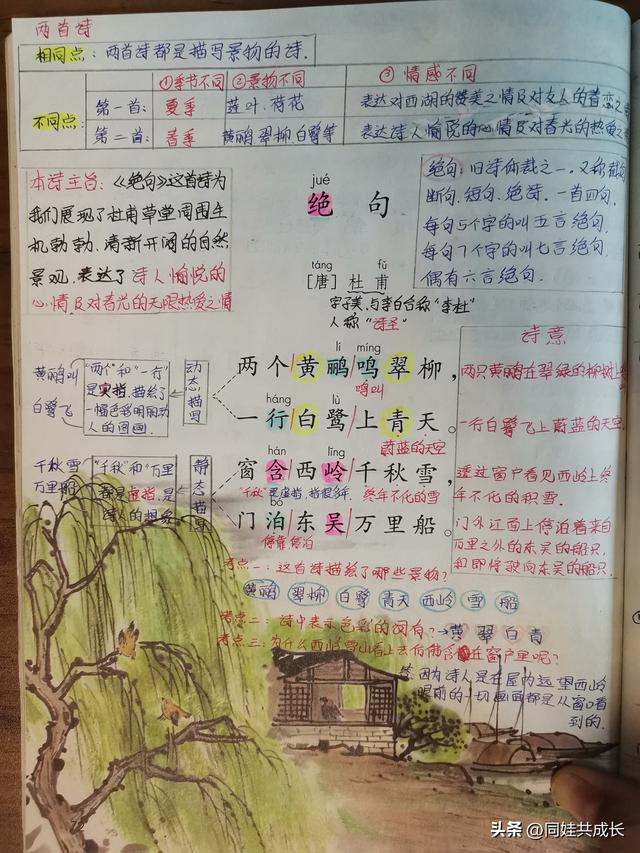 两首诗
相同点：两首诗都是描写景物的诗.
①季节不同 ②景物不同 ③情感不同
不同点：
第一首： 夏季 莲叶.荷花 表达对西湖的赞美之情及对友人的眷恋之
第二首： 春季 黄鹂翠柳白鹭等 表达诗人愉悦的心情及对春光的热爱之
本诗主旨：《绝句》这首诗为
我们展现了杜甫草堂周围生
机勃勃.清新开阔的自然
景观.表达了诗人愉悦的
心情及对春光的无限热爱之情
jué
绝 句
táng fǔ
[唐] 杜 甫
字子美.与李白合称"李杜"
人称"诗圣"
绝句：旧诗体裁之一.又称截句
断句.短句.绝诗.一首四句.
每句5个字的叫五言绝句.
每句7个字的叫七言绝句.
偶有六言绝句.
黄鹂叫
白鹭飞
"两个"和"一行"
是实指.描绘了
一幅色彩明丽动
人的图画.
动态描写
lí míng
两个/黄鹂/鸣翠柳，
鸣叫
háng lù
一行/白鹭/上青天。
蔚蓝的天空
千秋雪
万里船
"千秋"和"万里
都是虚指.是
诗人的想象
静态描写
hán lǐng
窗含西岭/千秋雪，
"千秋"是虚指，指很多年. 终年不化的雪
bó
门泊/东吴/万里船。
停靠.停泊
诗意
两只黄鹂在翠绿的柳树上
一行白鹭飞上蔚蓝的天空.
透过窗户看见西岭上终
年不化的积雪.
门外江面上停泊着来自
万里之外的东吴的船只，
和即将驶向东吴的船只.
考点一：这首诗描绘了哪些景物？
黄鹂 翠柳 白鹭 青天 西岭 雪 船
考点二：诗中表示色彩的词有？→黄 翠 白 青
考点三：为什么西岭雪山看上去仿佛含在窗户里呢？
答：因为诗人是在屋内远望西岭
眼前的一切画面都是从窗口看
到的.
头条 @同娃共成长